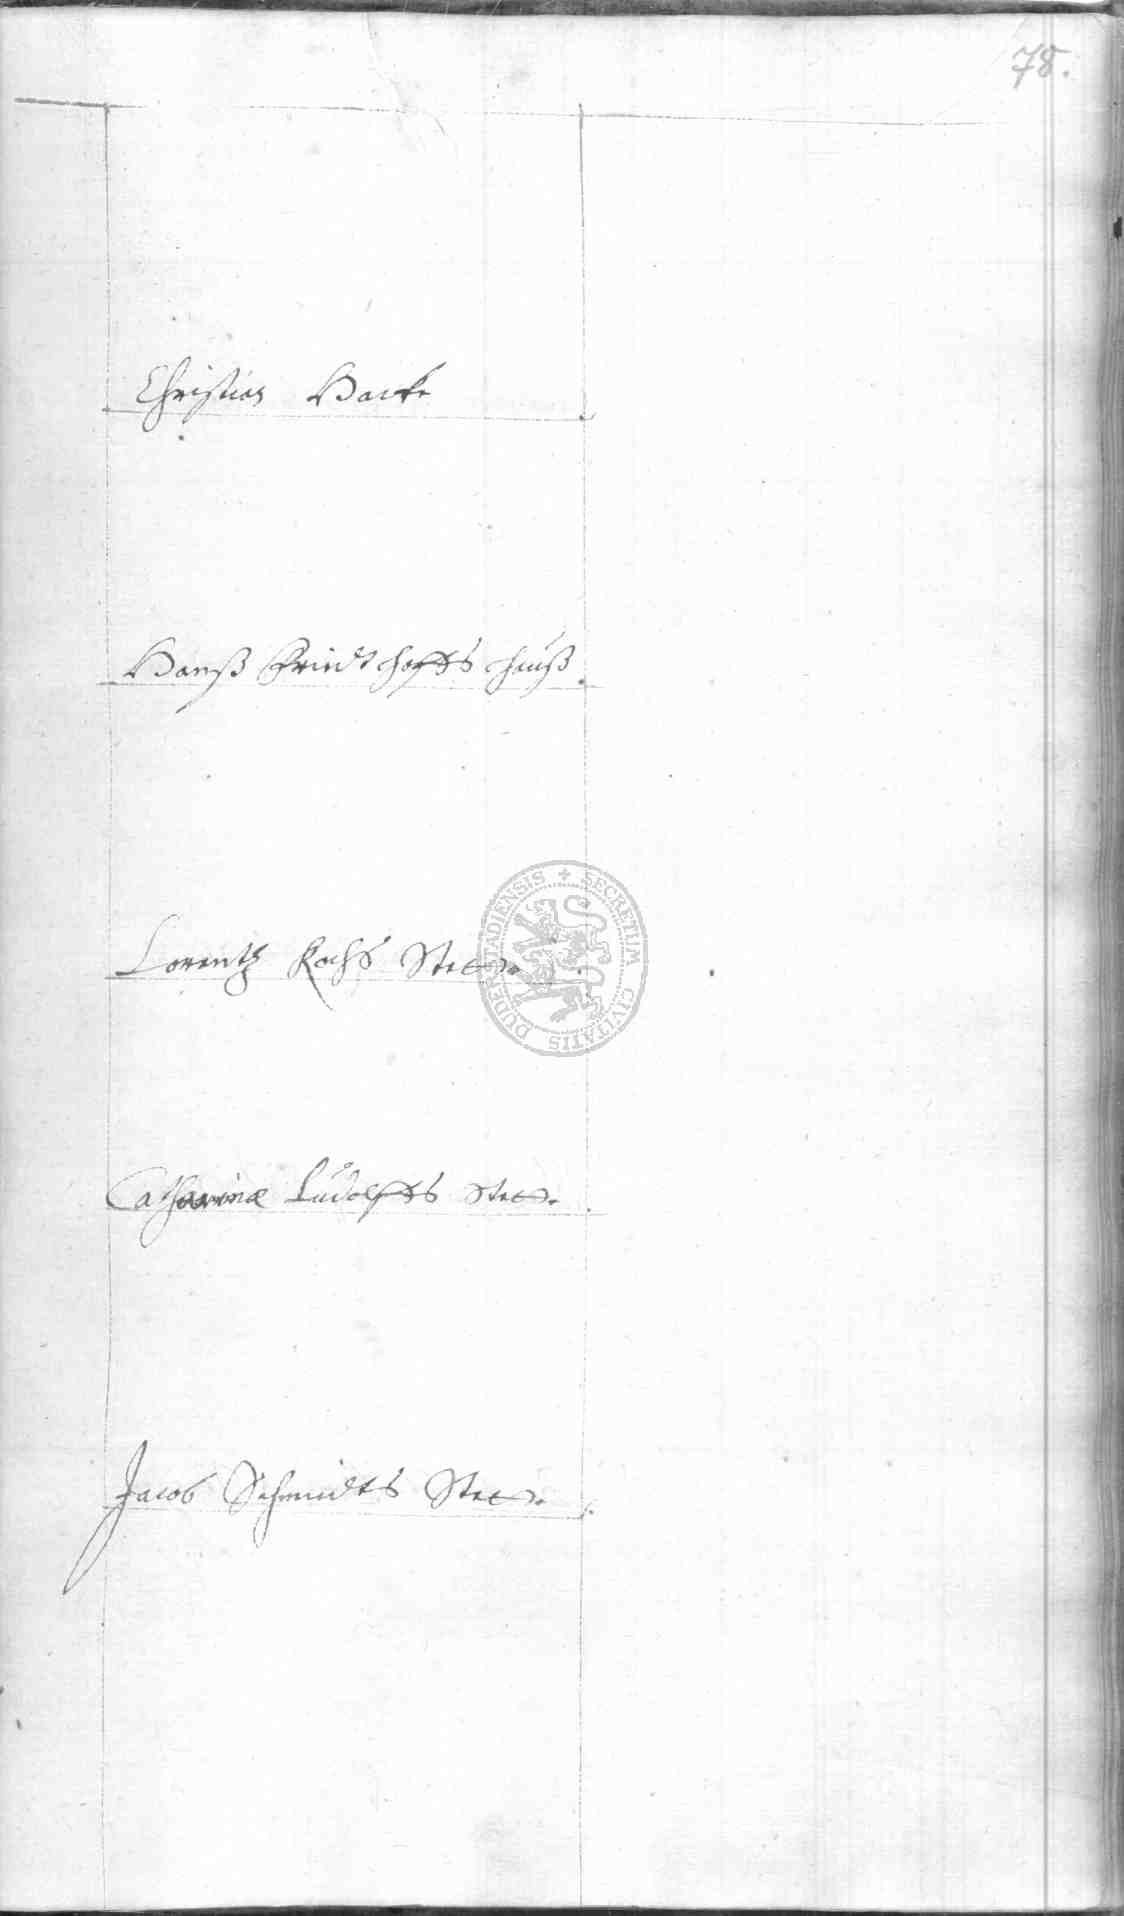 78.
Christian Hacke
Hanß Friedthoffs hauß
Lorentz Kochs Stet
Catharinæ Ludolffs Stet
Jacob Schmidts Stet
SECRETUM CIVITATIS DUDERSTADIENSIS